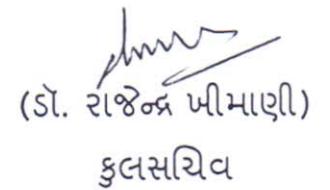 (ડૉ. રાજેન્દ્ર ખીમાણી)
કુલસચિવ